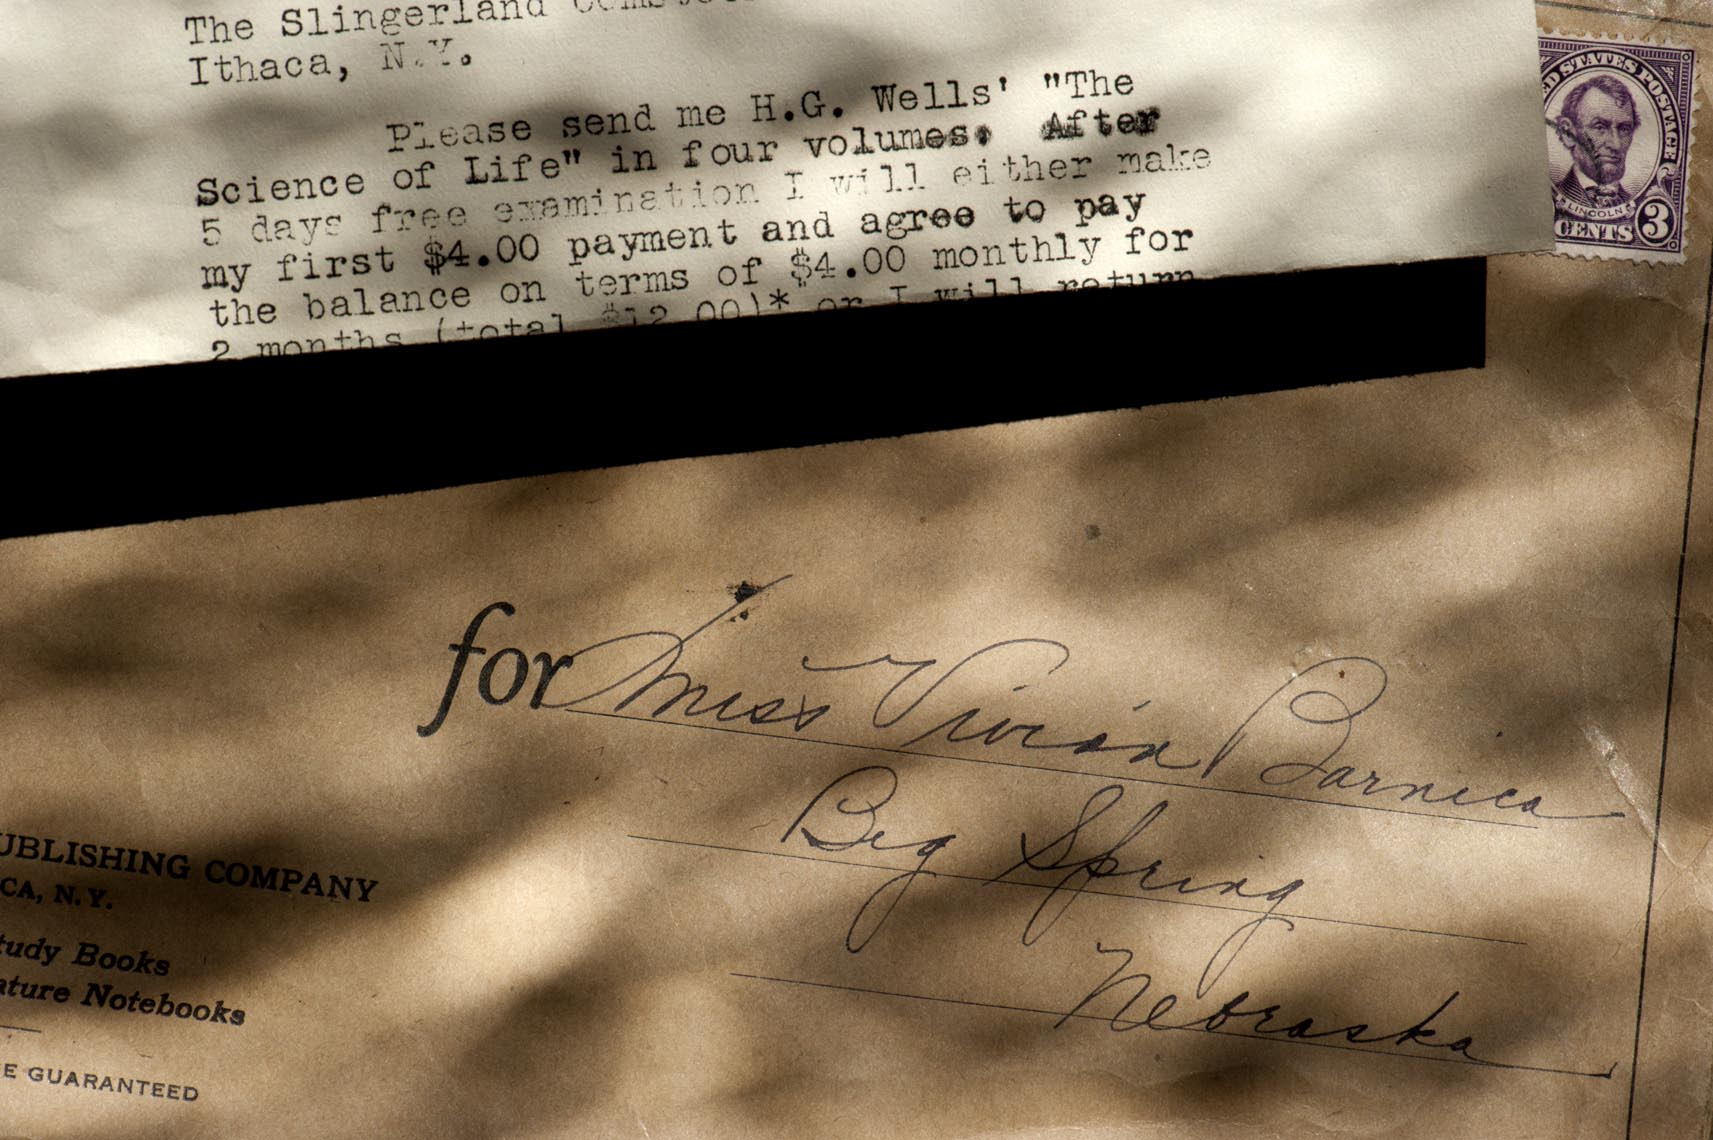 The Slingerland
Ithaca, N.Y.
Please send me H.G. Wells' "The
Science of Life" in four volumes. After
5 days free examination I will either make
my first $4.00 payment and agree to pay
the balance on terms of $4.00 monthly for
2 months (total $12.00)* or I will return
STATES POSTAGE
LINCOLN
CENTS 3
for Miss Vivian Barnica
Big Spring
Nebraska
UBLISHING COMPANY
CA, N.Y.
tudy Books
ature Notebooks
E GUARANTEED